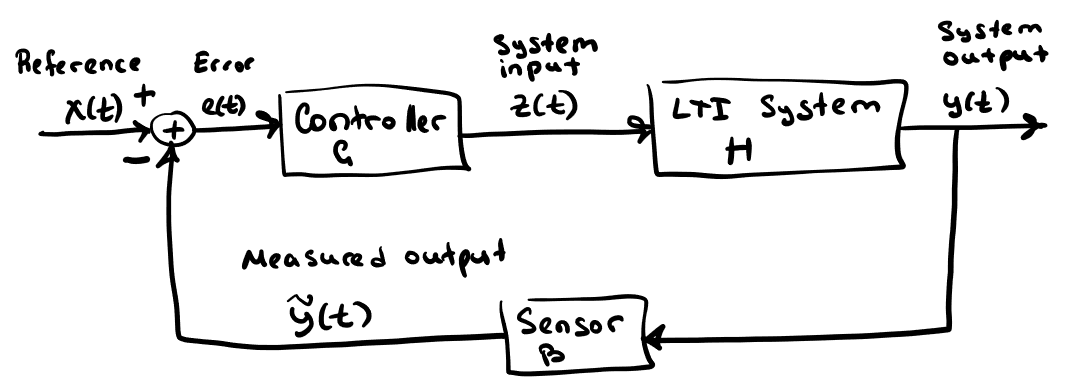 Reference
x(t)
+
−
+
Error
e(t)
Controller
G
System
input
z(t)
LTI System
H
System
output
y(t)
Measured output
ỹ(t)
Sensor
B